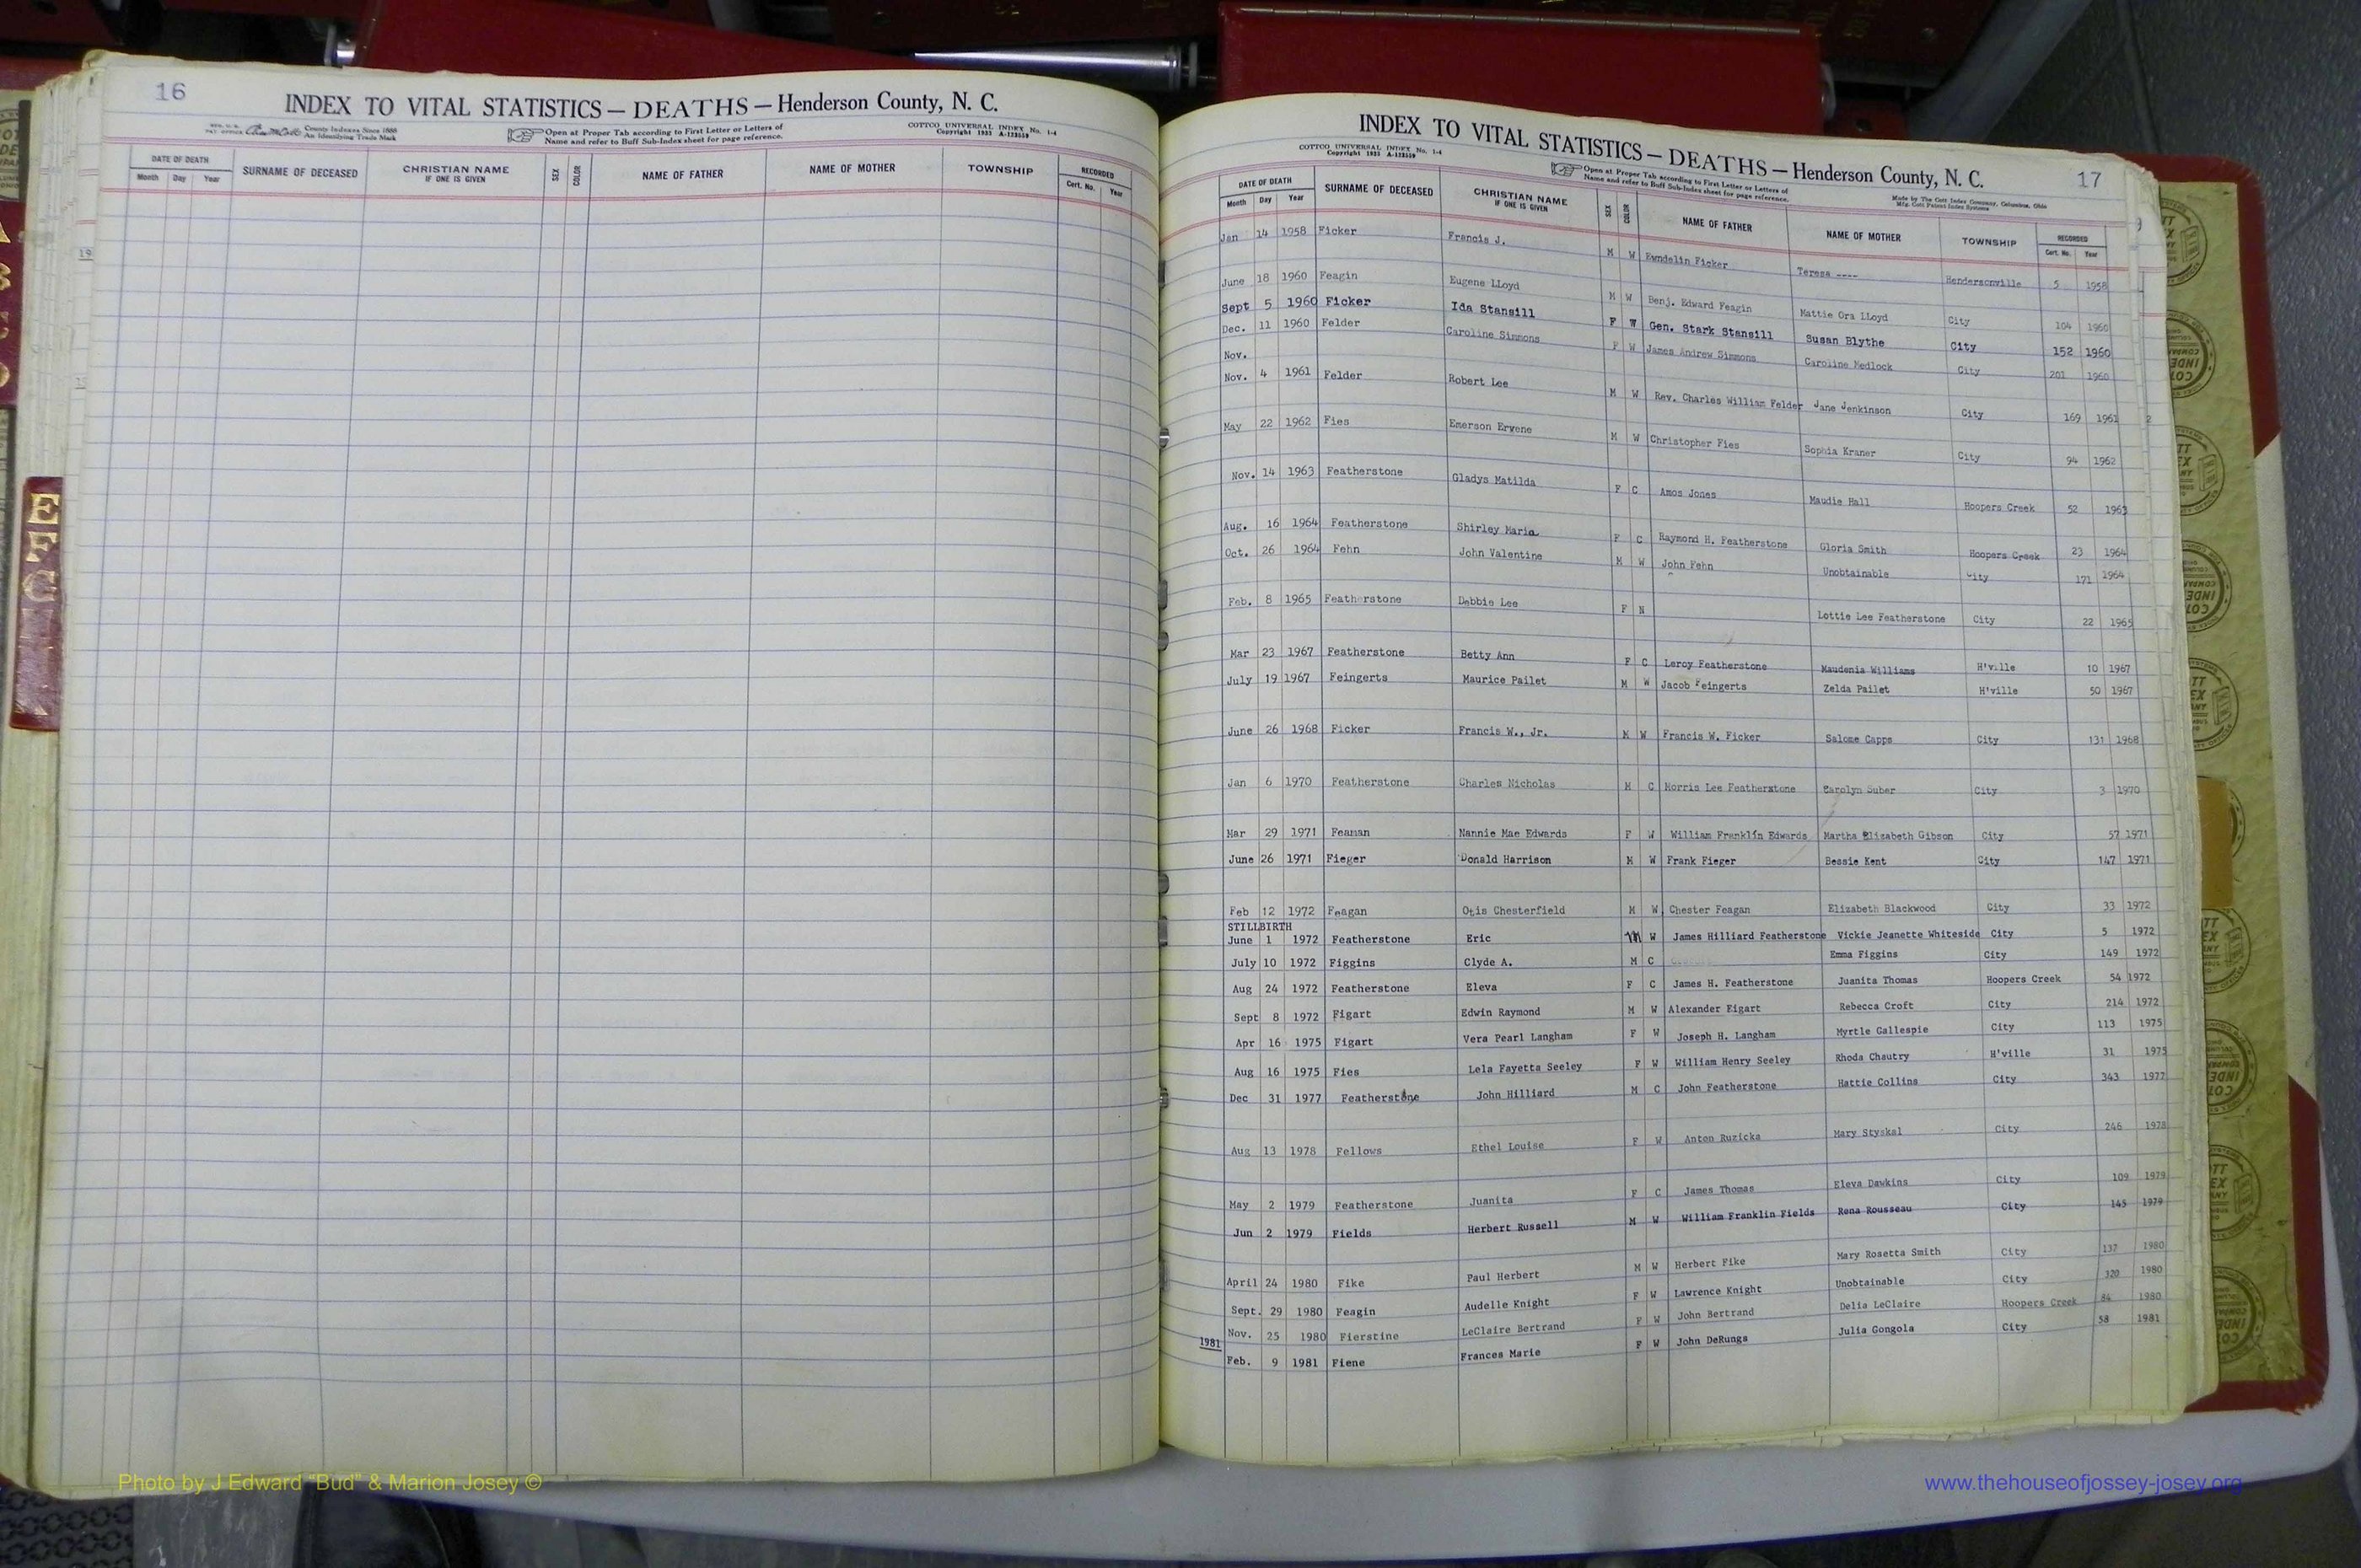 16
INDEX TO VITAL STATISTICS — DEATHS — Henderson County, N. C.
County Indexes Since 1888
An Identifying Trade Mark
Open at Proper Tab according to First Letter or Letters of
Name and refer to Buff Sub-Index sheet for page reference.
COTTCO UNIVERSAL INDEX No. 1-4
Copyright 1933 A-123559
DATE OF DEATH SURNAME OF DECEASED CHRISTIAN NAME IF ONE IS GIVEN SEX COLOR NAME OF FATHER NAME OF MOTHER TOWNSHIP RECORDED
Month Day Year Cert. No. Year
E
F
G
INDEX TO VITAL STATISTICS — DEATHS — Henderson County, N. C. 17
COTTCO UNIVERSAL INDEX No. 1-4
Copyright 1933 A-123559
Open at Proper Tab according to First Letter or Letters of
Name and refer to Buff Sub-Index sheet for page reference.
Made by The Cott Index Company, Columbus, Ohio
Mfg. Cott Patent Index Systems
DATE OF DEATH SURNAME OF DECEASED CHRISTIAN NAME IF ONE IS GIVEN SEX COLOR NAME OF FATHER NAME OF MOTHER TOWNSHIP RECORDED
Month Day Year Cert. No. Year
Jan 14 1958 Ficker Francis J. M W Ewndelin Ficker Teresa ---- Hendersonville 5 1958
June 18 1960 Feagin Eugene LLoyd M W Benj. Edward Feagin Mattie Ora LLoyd City 104 1960
Sept 5 1960 Ficker Ida Stansill F W Gen. Stark Stansill Susan Blythe City 152 1960
Dec. 11 1960 Felder Caroline Simmons F W James Andrew Simmons Caroline Medlock City 201 1960
Nov.
Nov. 4 1961 Felder Robert Lee M W Rev. Charles William Felder Jane Jenkinson City 169 1961
May 22 1962 Fies Emerson Ervene M W Christopher Fies Sophia Kraner City 94 1962
Nov. 14 1963 Featherstone Gladys Matilda F C Amos Jones Maudie Hall Hoopers Creek 52 1963
Aug. 16 1964 Featherstone Shirley Maria F C Raymond H. Featherstone Gloria Smith Hoopers Creek 23 1964
Oct. 26 1964 Fehn John Valentine M W John Fehn Unobtainable City 171 1964
Feb. 8 1965 Featherstone Debbie Lee F N Lottie Lee Featherstone City 22 1965
Mar 23 1967 Featherstone Betty Ann F C Leroy Featherstone Maudenia Williams H'ville 10 1967
July 19 1967 Feingerts Maurice Pailet M W Jacob Feingerts Zelda Pailet H'ville 50 1967
June 26 1968 Ficker Francis W., Jr. M W Francis W. Ficker Salome Capps City 131 1968
Jan 6 1970 Featherstone Charles Nicholas M C Morris Lee Featherstone Carolyn Suber City 3 1970
Mar 29 1971 Feaman Nannie Mae Edwards F W William Franklin Edwards Martha Elizabeth Gibson City 57 1971
June 26 1971 Fieger Donald Harrison M W Frank Fieger Bessie Kent City 147 1971
Feb 12 1972 Feagan Otis Chesterfield M W Chester Feagan Elizabeth Blackwood City 33 1972
STILLBIRTH
June 1 1972 Featherstone Eric M W James Hilliard Featherstone Vickie Jeanette Whiteside City 5 1972
July 10 1972 Figgins Clyde A. M C Emma Figgins City 149 1972
Aug 24 1972 Featherstone Eleva F C James H. Featherstone Juanita Thomas Hoopers Creek 54 1972
Sept 8 1972 Figart Edwin Raymond M W Alexander Figart Rebecca Croft City 214 1972
Apr 16 1975 Figart Vera Pearl Langham F W Joseph H. Langham Myrtle Gallespie City 113 1975
Aug 16 1975 Fies Lela Fayetta Seeley F W William Henry Seeley Rhoda Chautry H'ville 31 1975
Dec 31 1977 Featherstone John Hilliard M C John Featherstone Hattie Collins City 343 1977
Aug 13 1978 Fellows Ethel Louise F W Anton Ruzicka Mary Styskal City 246 1978
May 2 1979 Featherstone Juanita F C James Thomas Eleva Dawkins City 109 1979
Jun 2 1979 Fields Herbert Russell M W William Franklin Fields Rena Rousseau City 145 1979
April 24 1980 Fike Paul Herbert M W Herbert Fike Mary Rosetta Smith City 137 1980
Sept. 29 1980 Feagin Audelle Knight F W Lawrence Knight Unobtainable City 320 1980
Nov. 25 1980 Fierstine LeClaire Bertrand F W John Bertrand Delia LeClaire Hoopers Creek 84 1980
1981
Feb. 9 1981 Fiene Frances Marie F W John DeRungs Julia Gongola City 58 1981
Photo by J Edward “Bud” & Marion Josey ©
www.thehouseofjossey-josey.org